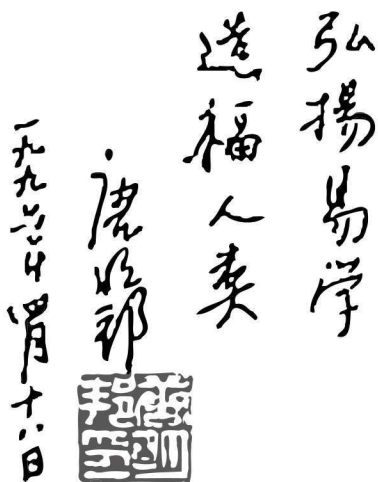 弘揚易学
造福人类
唐明邦
一九九六年四月十八日
唐明邦印